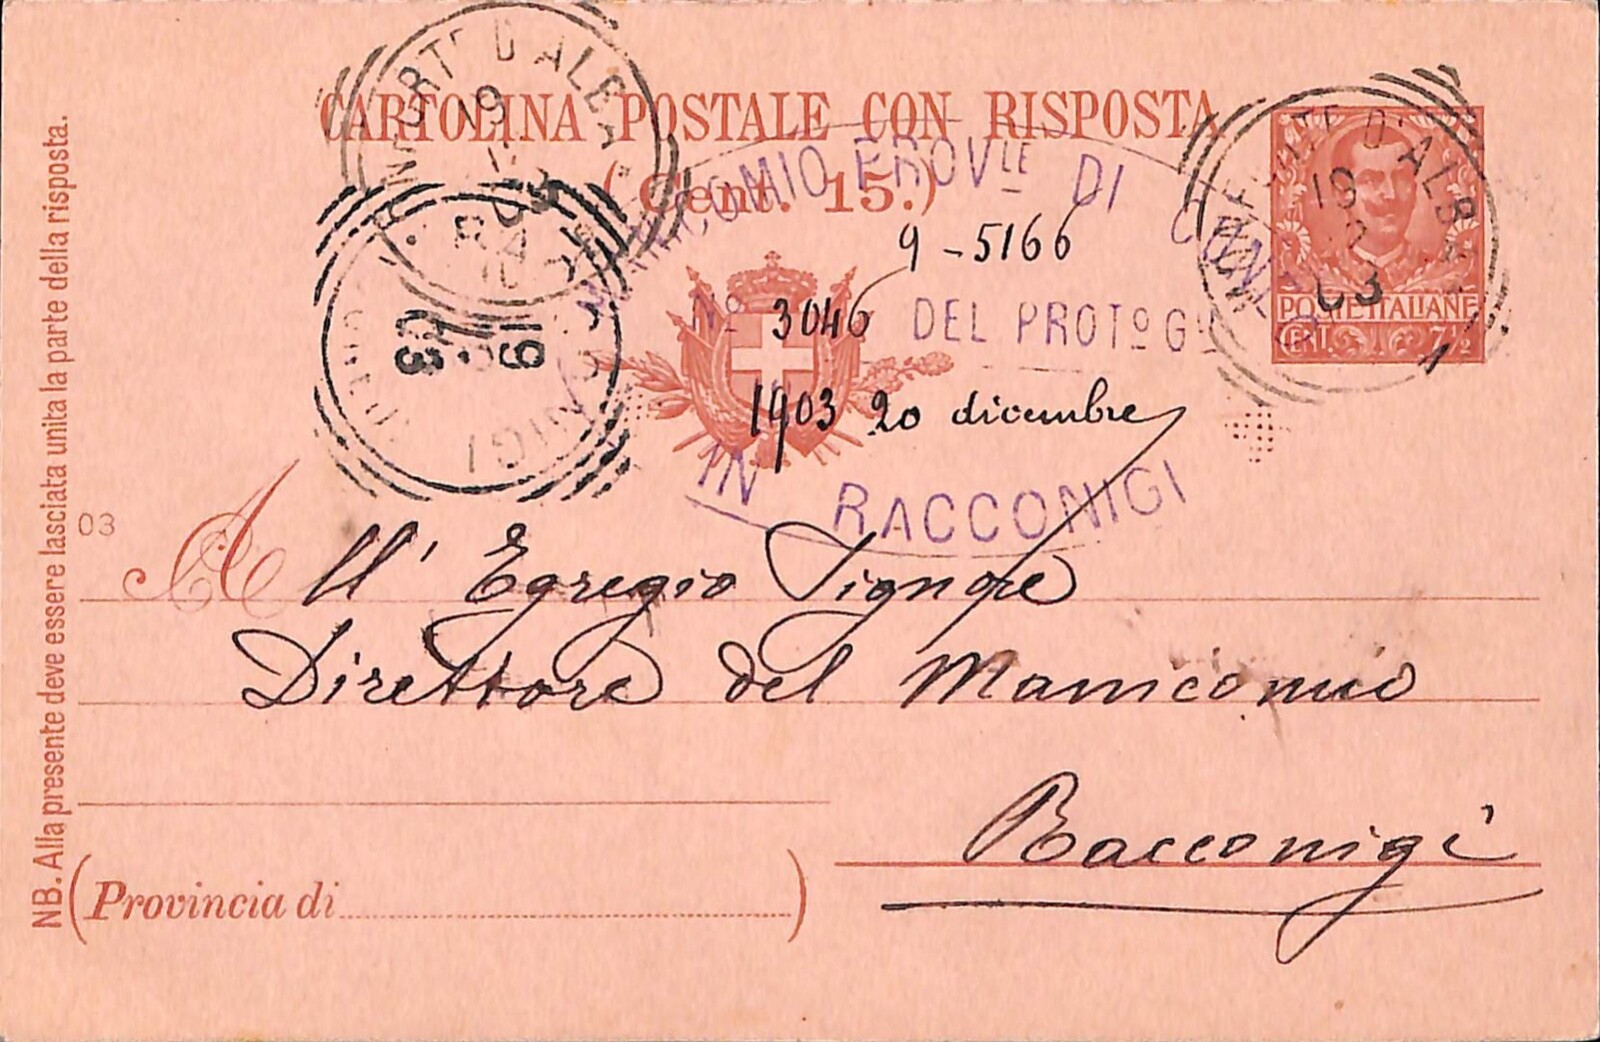 CARTOLINA POSTALE CON RISPOSTA
(Cent. 15.)
MONFORTE D'ALBA
19 12 03
MONFORTE D'ALBA
19 12 03
RACCONIGI
19 12 03
POSTE ITALIANE
CENT. 7½
MANICOMIO PROVLE DI CUNEO
9 - 5166
No 3046 DEL PROTo G
1903 20 dicembre
IN RACCONIGI
03
All' Egregio Signore
Direttore del Manicomio
Racconigi
(Provincia di)
NB. Alla presente deve essere lasciata unita la parte della risposta.